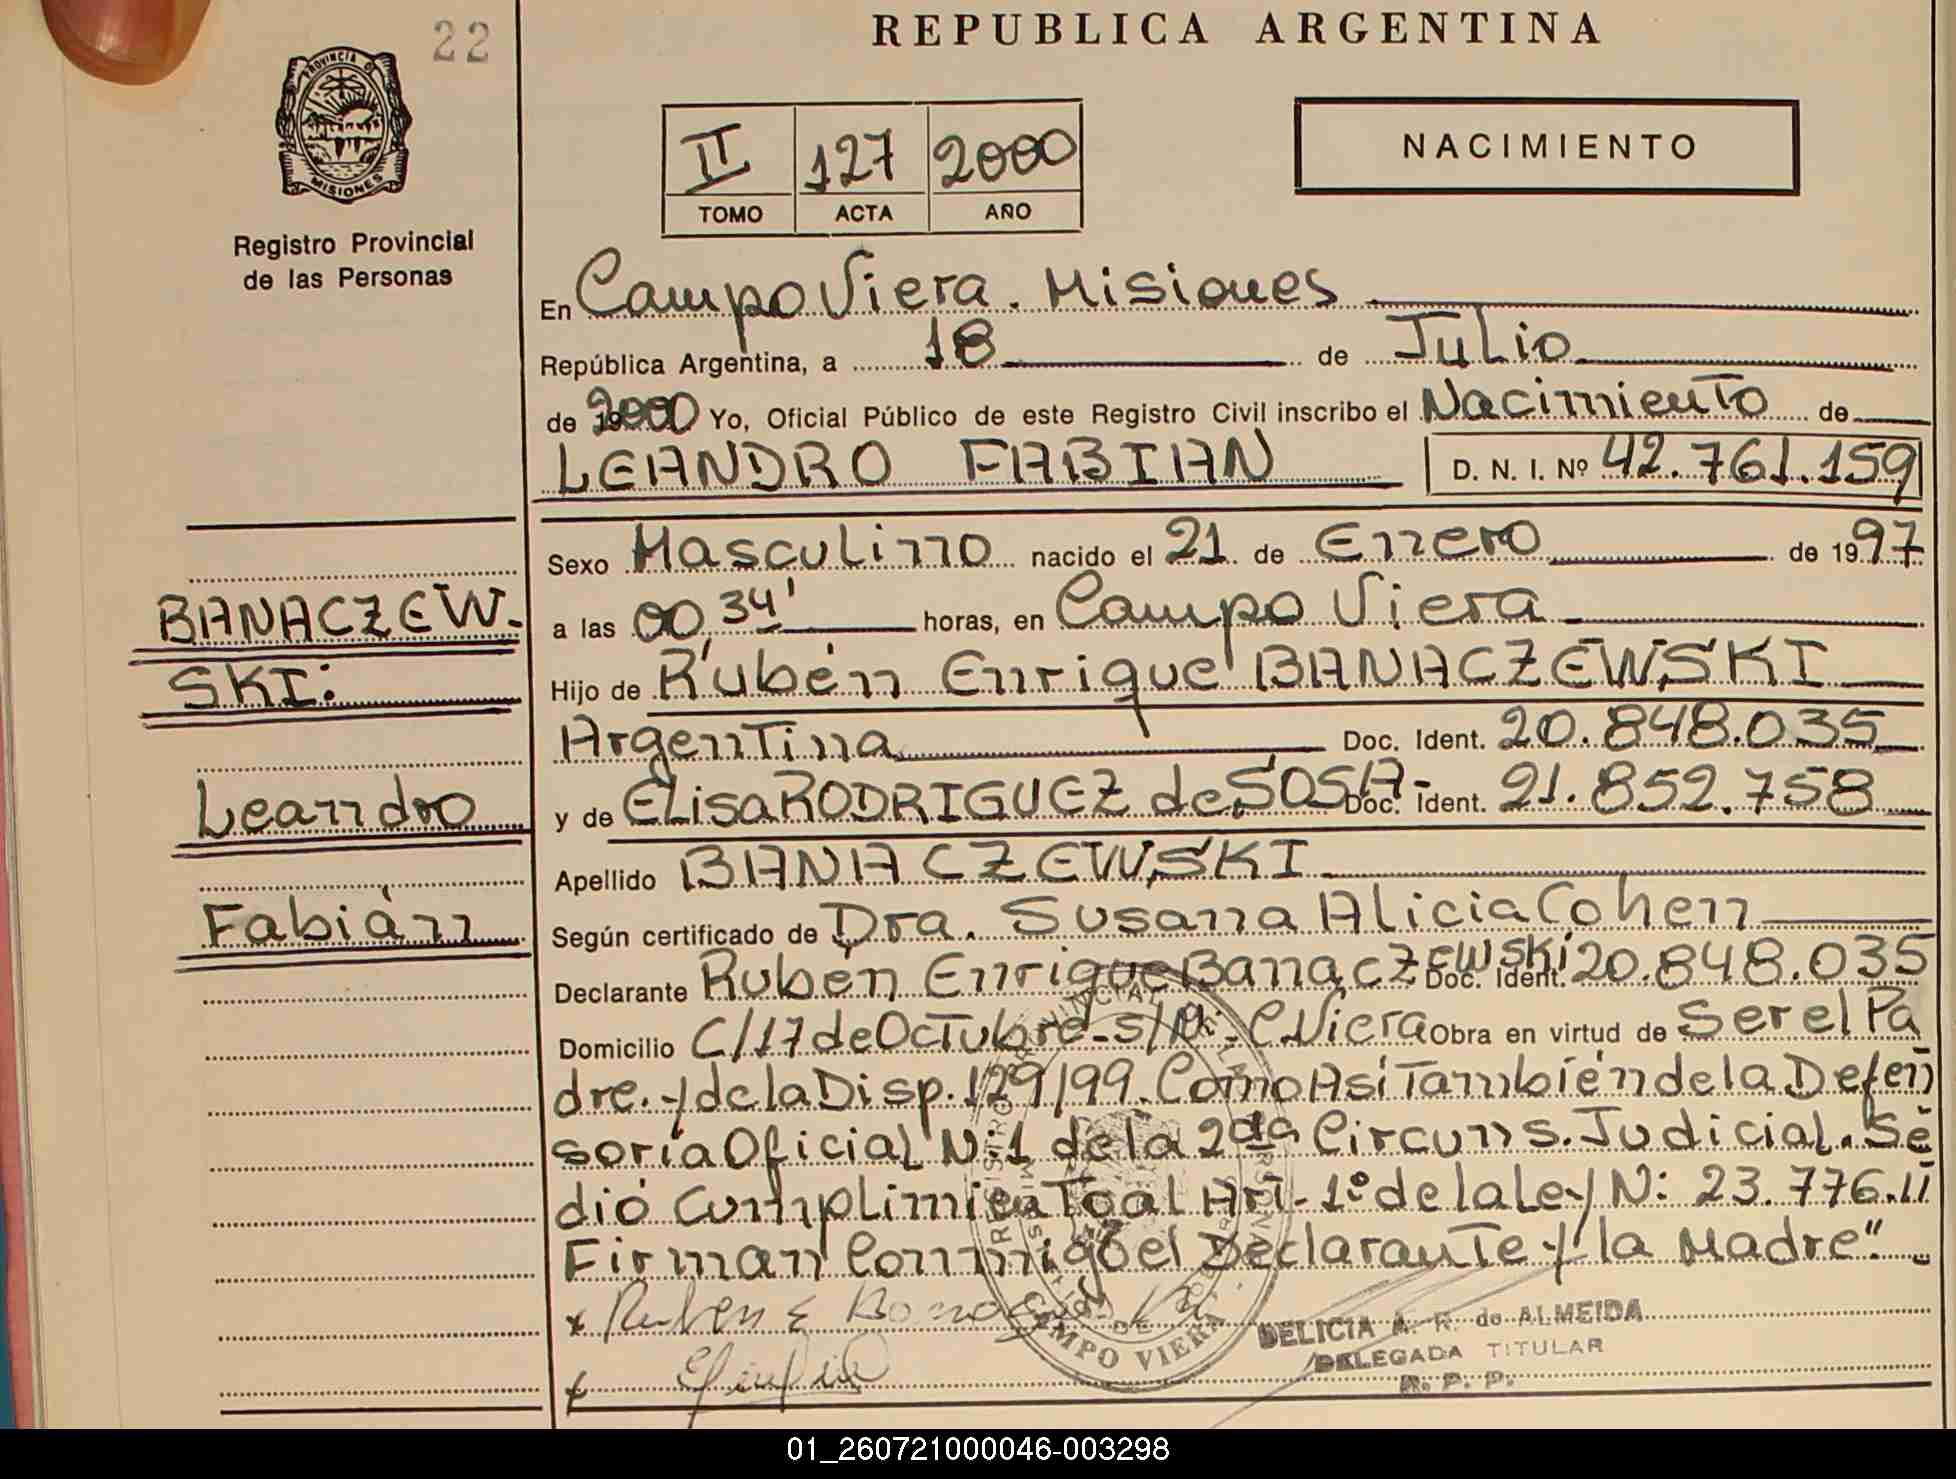 22
REPUBLICA ARGENTINA
PROVINCIA DE
MISIONES
Registro Provincial
de las Personas
II 127 2000
TOMO ACTA AÑO
NACIMIENTO
En Campo Viera. Misiones
República Argentina, a 18 de Julio
de 2000 Yo, Oficial Público de este Registro Civil inscribo el Nacimiento de
LEANDRO FABIAN D. N. I. Nº 42.761.159
Sexo Masculino nacido el 21 de Enero de 1997
a las 00,34' horas, en Campo Viera
Hijo de Rubén Enrique BANACZEWSKI
Argentina Doc. Ident. 20.848.035
y de ELisa RODRIGUEZ de SOSA- Doc. Ident. 21.852.758
Apellido BANACZEWSKI
Según certificado de Dra. Susana Alicia Cohen
Declarante Rubén Enrique Banaczewski Doc. Ident. 20.848.035
Domicilio C/17 de Octubre-s/N: C.Viera Obra en virtud de Ser el Pa
dre.-y de la Disp. 129/99. Como Así También de la Defen
soría Oficial N:1 de la 2da Circuns. Judicial. Se
dió Cumplimiento al Art- 1º de la Ley N: 23.776.11
Firman Conmigo el Declarante y la Madre"
x Ruben E
x
DELICIA A. R. de ALMEIDA
DELEGADA TITULAR
R. P. P.
CAMPO VIERA
BANACZEW-
SKI:
Leandro
Fabián
01_260721000046-003298